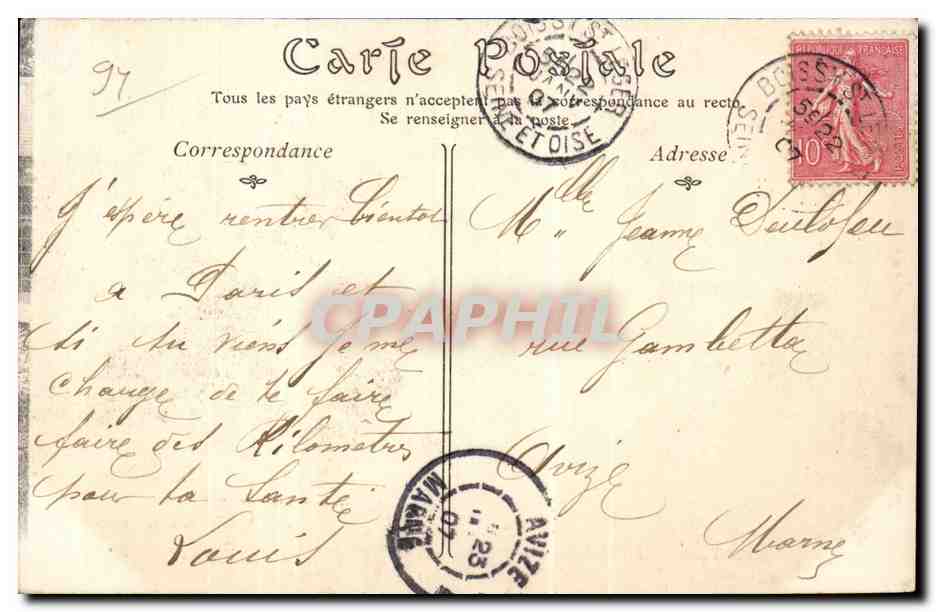 97
Carte Postale
Tous les pays étrangers n'acceptent pas la correspondance au recto.
Se renseigner à la poste.
Correspondance
J'espère rentrer bientot
a Paris et
si tu viens je me
charge de te faire
faire des Kilomètres
pour ta Santé
Louis
Adresse
Mlle Jeanne
rue Gambetta
Avize
Marne
REPUBLIQUE FRANÇAISE
10
POSTES
BOISSY ST LEGER
07
SEINE ET OISE
BOISSY ST
AVIZE
23
07
MARNE
CPAPHIL